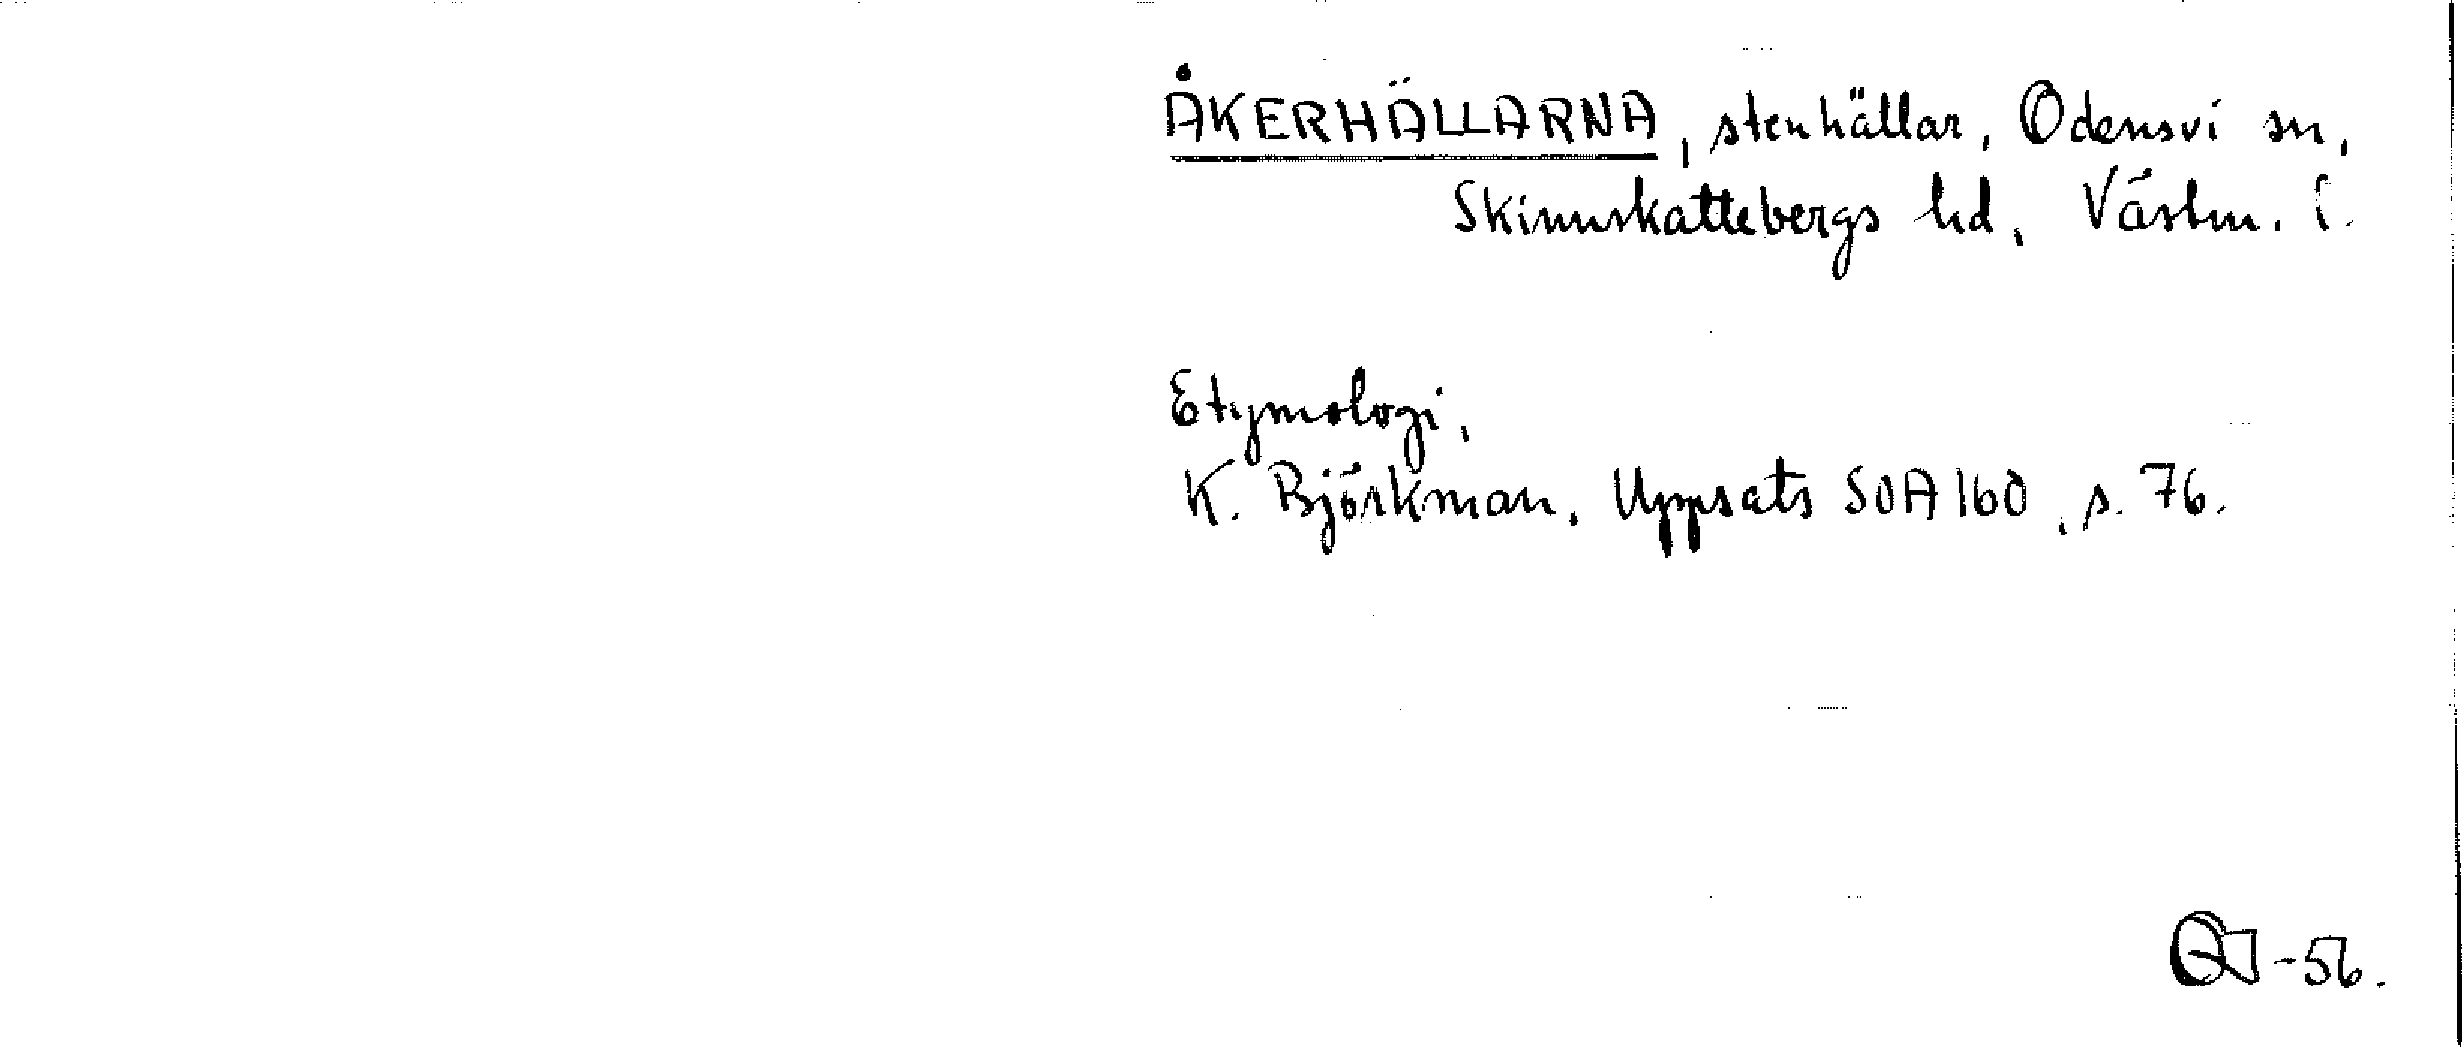 ÅKERHÄLLARNA, stenhällar, Odensvi sn,
Skinnskattebergs hd, Västm. l.
Etymologi,
K. Björkman, Uppsats SOA 160, s. 76.
-56.